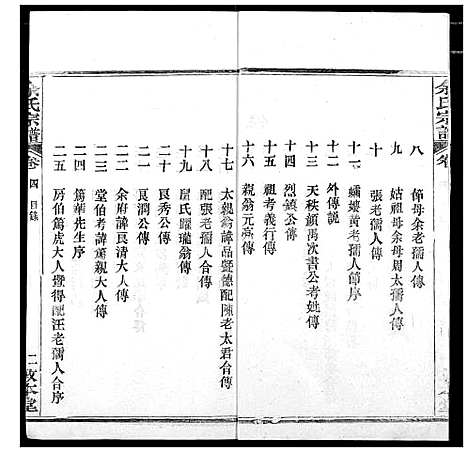 余氏宗譜
卷
八 節母余老孺人傳
九 姑祖母余母周太孺人傳
十 張老孺人傳
十一 孀嫂黃老孺人節序
十二 外傳說
十三 天秩頟禹次書公考姚傳
十四 烈鎮公傳
十五 祖考義行傳
十六 親翁元亮傳
十七 太親翁諱品暨德配陳老太君合傳
十八 配張老孺人合傳
十九 屋氏躍瓏翁傳
二十 艮秀公傳
二一 艮濶公傳
二二 余府諱艮清大人傳
二三 堂伯考諱萬親大人傳
二四 篤華先生序
二五 房伯篤虎大人暨得配汪老孺人合序
余氏宗譜
卷四 目錄
二 敦本堂